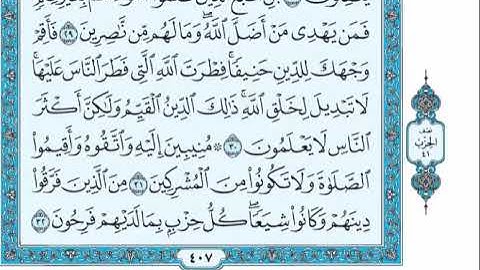 فَمَن يَهْدِى مَنْ أَضَلَّ ٱللَّهُ ۖ وَمَا لَهُم مِّن نَّٰصِرِينَ ٢٩ فَأَقِمْ
وَجْهَكَ لِلدِّينِ حَنِيفًا ۚ فِطْرَتَ ٱللَّهِ ٱلَّتِى فَطَرَ ٱلنَّاسَ عَلَيْهَا ۚ
لَا تَبْدِيلَ لِخَلْقِ ٱللَّهِ ۚ ذَٰلِكَ ٱلدِّينُ ٱلْقَيِّمُ وَلَٰكِنَّ أَكْثَرَ
ٱلنَّاسِ لَا يَعْلَمُونَ ٣٠ ۞ مُنِيبِينَ إِلَيْهِ وَٱتَّقُوهُ وَأَقِيمُوا۟
ٱلصَّلَوٰةَ وَلَا تَكُونُوا۟ مِنَ ٱلْمُشْرِكِينَ ٣١ مِنَ ٱلَّذِينَ فَرَّقُوا۟
دِينَهُمْ وَكَانُوا۟ شِيَعًا ۖ كُلُّ حِزْبٍۭ بِمَا لَدَيْهِمْ فَرِحُونَ ٣٢
نصف
الحزب
٤١
٤٠٧